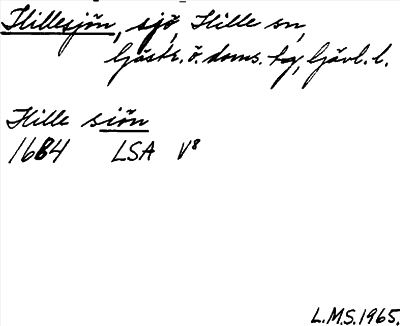 Hillesjön, sjö, Hille sn,
Gästr. ö. doms. hg, Gävl. l.
Hille siön
1684 LSA V8
L.M.S.1965.